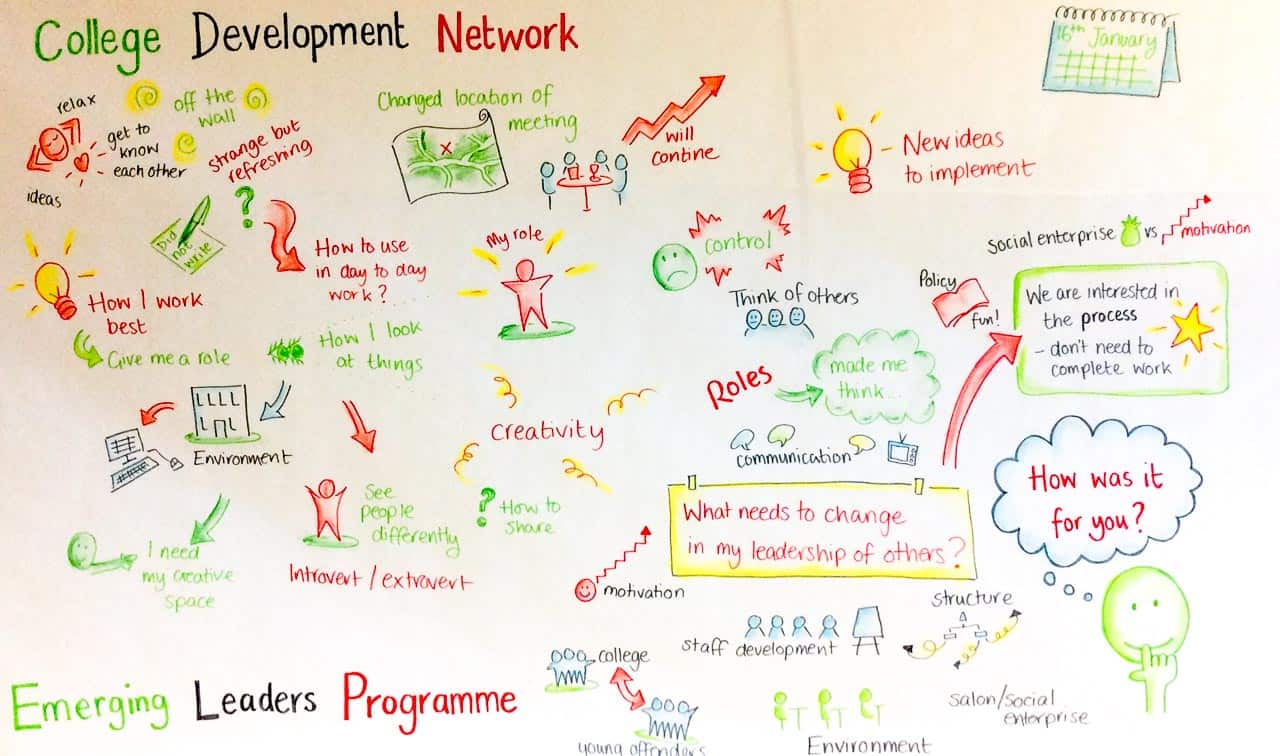 College Development Network
16th January
relax
off the
wall
get to
know
each other
ideas
strange but
refreshing
?
Changed location of
meeting
x
will
contine
New ideas
to implement
Did
not
write
How to use
in day to day
work?
My role
control
Think of others
Social enterprise vs motivation
Policy
fun!
We are interested in
the process
- don't need to
complete work
How I work
best
Give me a role
How I look
at things
Roles
made me
think...
Environment
creativity
communication
See
people
differently
Introvert / extrovert
? How to
share
I need
my creative
space
What needs to change
in my leadership of others?
motivation
How was it
for you?
staff development
structure
college
young offenders
Environment
Salon/social
enterprise
Emerging Leaders Programme